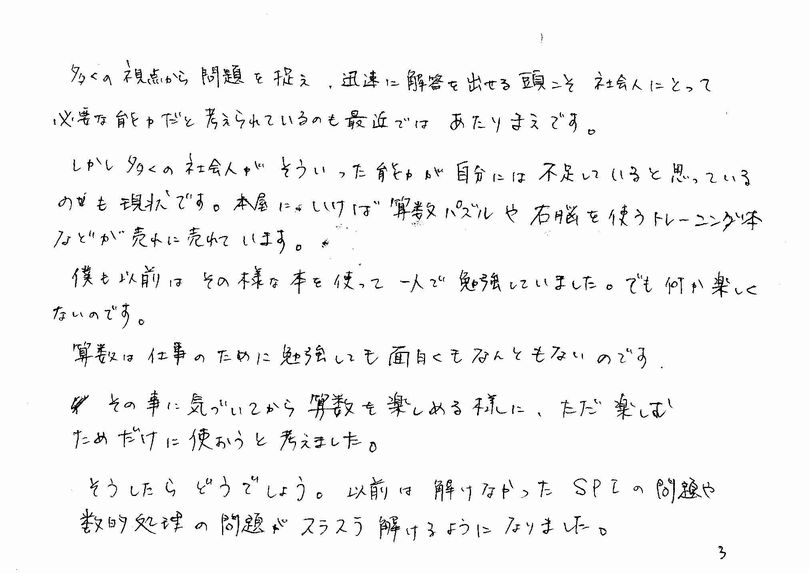 多くの視点から問題を捉え、迅速に解答を出せる頭こそ 社会人にとって
必要な能力だと考えられているのも最近では あたりまえです。
しかし多くの社会人が そういった能力が自分には不足していると思っている
のが も現状です。本屋に いけば算数パズルや右脳を使うトレーニング本
などが売れに売れています。
僕も以前は その様な本を使って 一人で勉強していました。でも何か楽しく
ないのです。
算数は仕事のために勉強しても面白くもなんともないのです.
その事に気づいてから算数を楽しめる様に、ただ楽しむ
ためだけに使おうと考えました。
そうしたら どうでしょう。以前は 解けなかった SPIの問題や
数的処理の問題が スラスラ解けるようになりました。
3